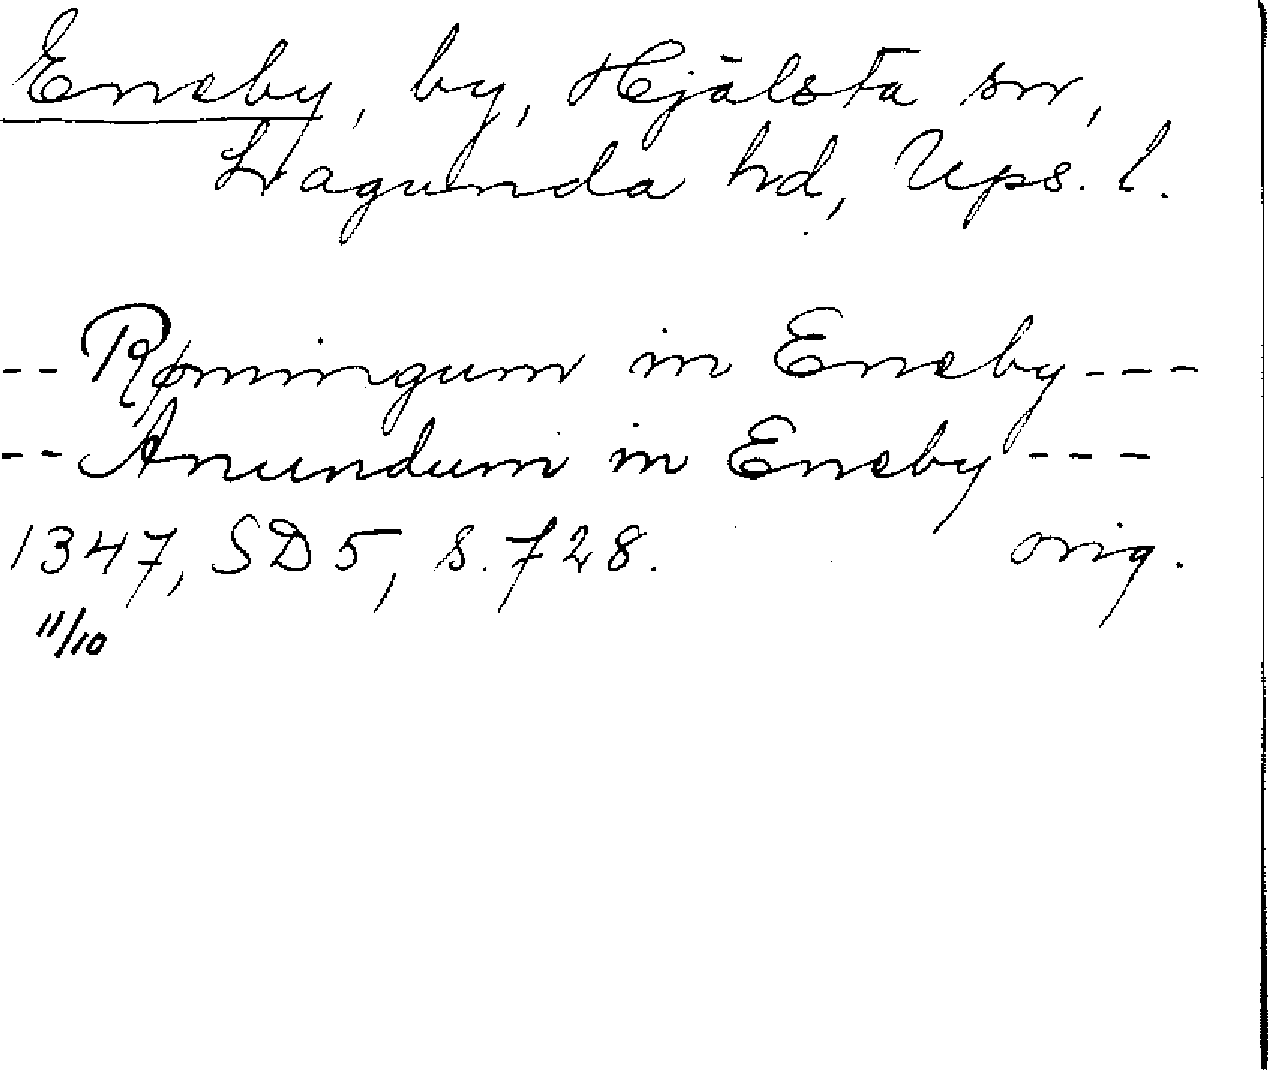 Eneby, by, Hjälsta sn,
Lagunda hd, Ups. l.
-- Rømingum in Eneby ---
-- Anundum in Eneby ---
1347, SD 5, s. 728. orig.
11/10